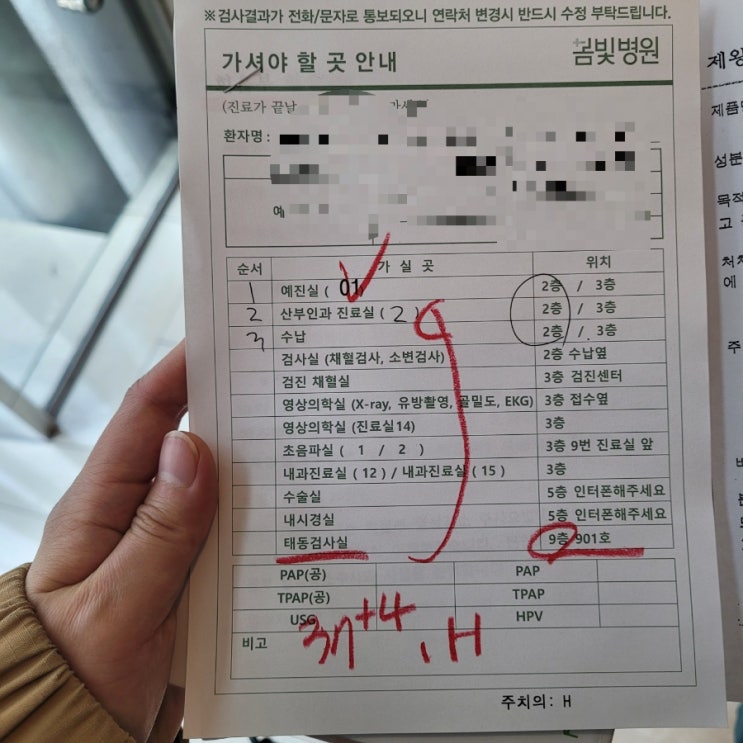 ※검사결과가 전화/문자로 통보되오니 연락처 변경시 반드시 수정 부탁드립니다.
가셔야 할 곳 안내 봄빛병원
(진료가 끝날
환자명 :
예
순서 가 실 곳 위치
1 예진실 ( 01 2층 / 3층
2 산부인과 진료실 ( 2 ) 2층 / 3층
3 수납 2층 / 3층
검사실 (채혈검사, 소변검사) 2층 수납옆
검진 채혈실 3층 검진센터
영상의학실 (X-ray, 유방촬영, 골밀도, EKG) 3층 접수옆
영상의학실 (진료실14) 3층
초음파실 ( 1 / 2 ) 3층 9번 진료실 앞
내과진료실 ( 12 ) / 내과진료실 ( 15 ) 3층
수술실 5층 인터폰해주세요
내시경실 5층 인터폰해주세요
태동검사실 9층 901호
PAP(공) PAP
TPAP(공) TPAP
USG HPV
비고
37+4, H
주치의: H
제왕
제품
성분
목적
고
처치
에
주